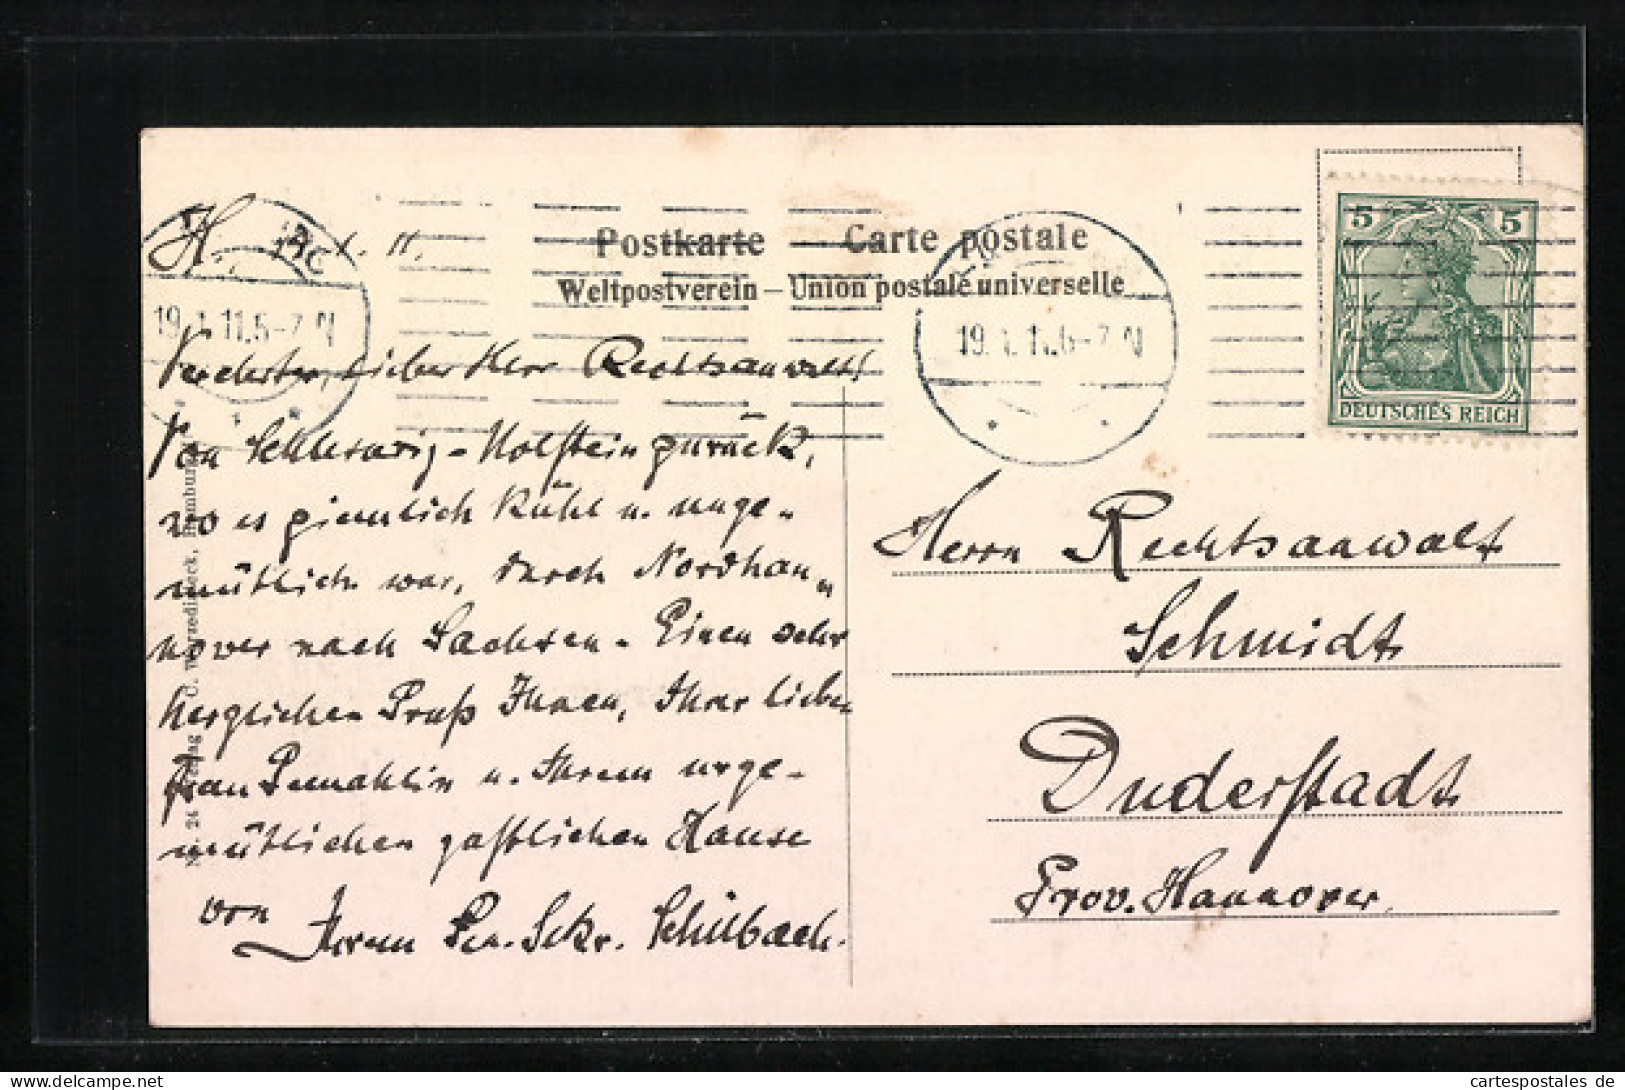 Postkarte Carte postale
Weltpostverein – Union postale universelle
H. 1. 11.
19.1.11.5-7.N
19.1.11.6-7.N
5 5
DEUTSCHES REICH
Verehrter, lieber Herr Rechtsanwalt!
Von Schleswig-Holstein zurück,
wo es ziemlich kühl u. unge-
mütlich war, durch Nordhan-
nover nach Sachsen. Einen sehr
herzlichen Gruß Ihnen, Ihrer lieben
Frau Gemahlin u. Ihrem urge-
mütlichen gastlichen Hause
von
Ihrem Gen. Sekr. Schülbach.
Herrn Rechtsanwalt
Schmidt
Duderstadt
Prov. Hannover.
24 Verlag C. Worzedialeck, Hamburg
cartespostales de